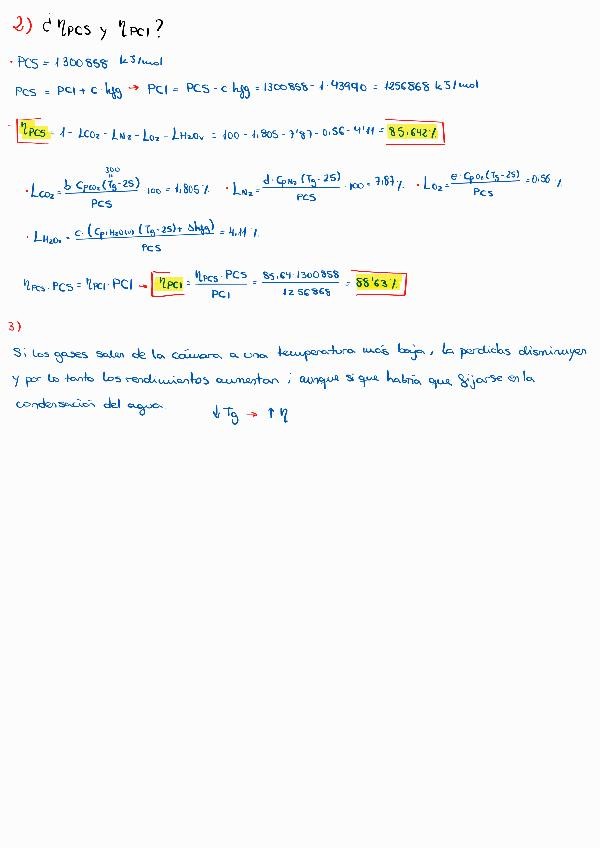 2) ¿ηPCS y ηPCI?
· PCS = 1300858 kJ/mol
PCS = PCI + c·hfg → PCI = PCS - c hfg = 1300858 - 1·43990 = 1256868 kJ/mol
ηPCS = 1 - LCO2 - LN2 - LO2 - LH2Ov = 100 - 1,805 - 7'87 - 0,56 - 4'11 = 85,642%
· LCO2 = b CpCO2 (Tg - 25) / PCS · 100 = 1,805 % · LN2 = d · CpN2 (Tg - 25) / PCS · 100 = 7,87 % · LO2 = e · CpO2 (Tg - 25) / PCS = 0,56 %
300
· LH2Ov = c · (CpH2O(v) (Tg - 25) + Δhfg) / PCS = 4,11 %
ηPCS · PCS = ηPCI · PCI → ηPCI = ηPCS · PCS / PCI = 85,64 · 1300858 / 1256868 = 88'63 %
3)
Si los gases salen de la cámara a una temperatura más baja, la perdidas disminuyen
y por lo tanto los rendimientos aumentan; aunque si que habría que fijarse en la
condensación del agua
↓Tg → ↑η